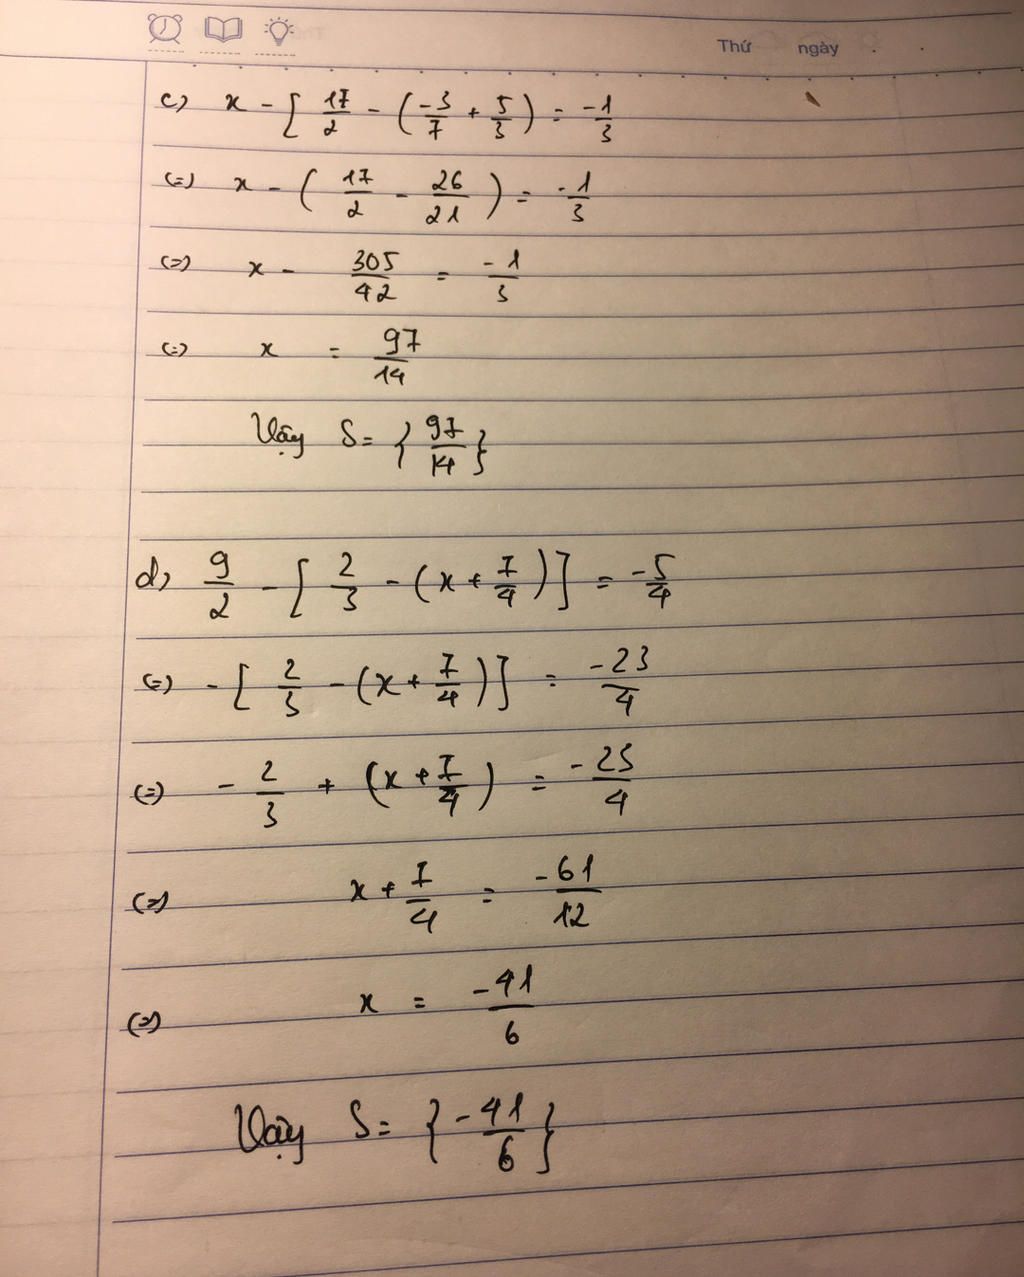 Thứ ngày
c) x - [ 17/2 - ( -3/7 + 5/3 ) = -1/3
(=) x - ( 17/2 - 26/21 ) = -1/3
(=) x - 305/42 = -1/3
(=) x = 97/14
Vậy S = { 97/14 }
d) 9/2 - [ 2/3 - ( x + 7/4 ) ] = -5/4
(=) - [ 2/3 - ( x + 7/4 ) ] = -23/4
(=) - 2/3 + ( x + 7/4 ) = -23/4
(=) x + 7/4 = -61/12
(=) x = -41/6
Vậy S = { -41/6 }